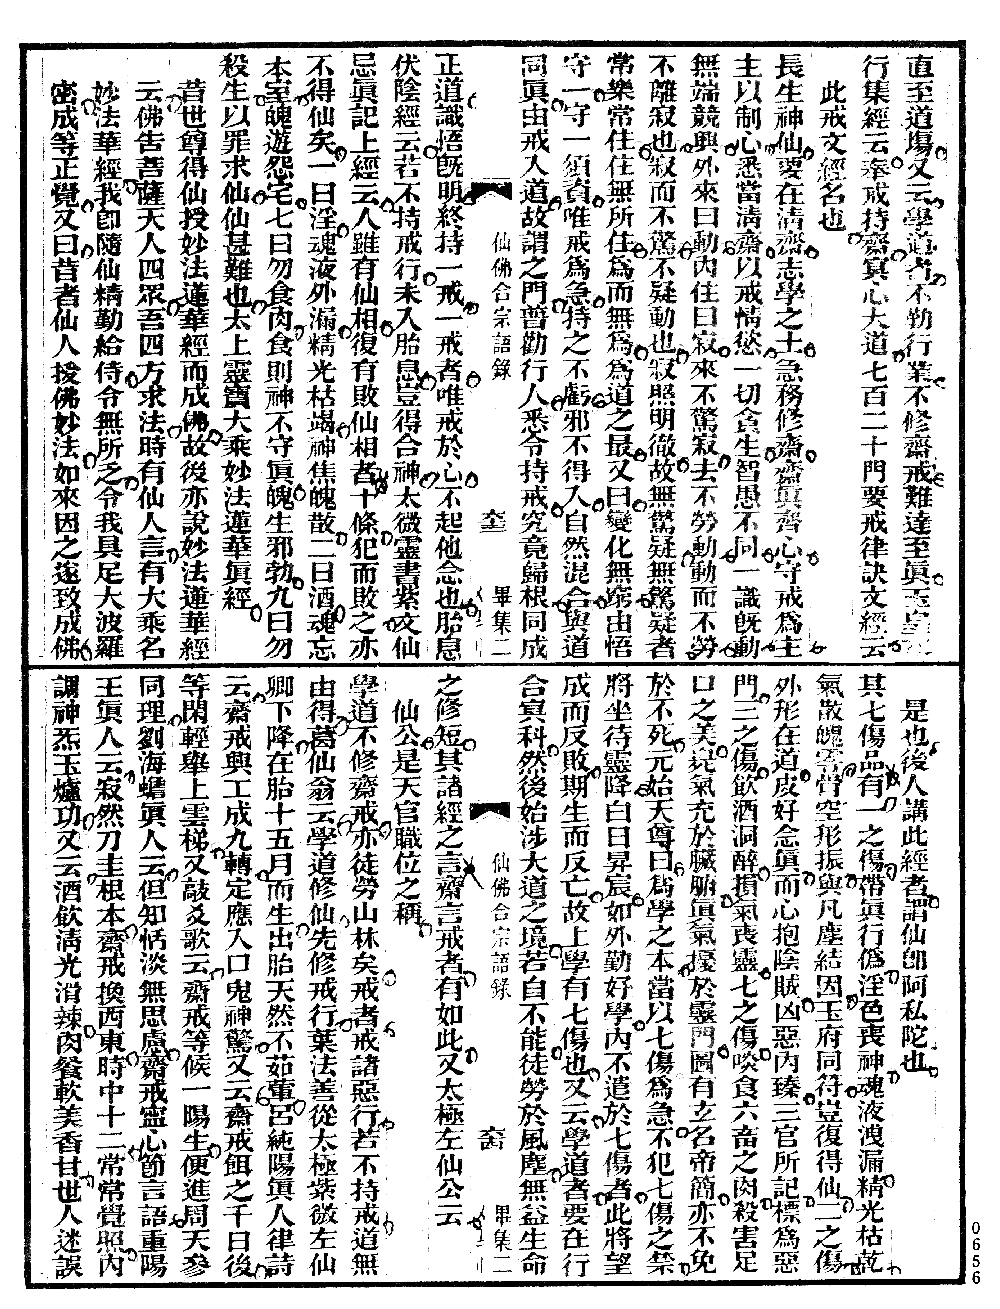 直至道場又云學道者不勤行業不修齋戒難達至眞玉皇
行集經云奉戒持齋冥心大道七百二十門要戒律訣文經云
此戒文經名也
長生神仙要在清齋志學之士急務修齋齋眞齊心守戒爲主
主以制心悉當淸齋以戒情慾一切貪生智愚不同一識旣動
無端競興外來曰動內住曰寂來不驚寂去不勞動動而不勞
不離寂也寂而不驚不疑動也寂照明徹故無驚疑無驚疑者
常樂常住住無所住爲而無爲爲道之最又曰變化無窮由悟
守一守一須資唯戒爲急持之不虧邪不得入自然混合與道
同眞由戒入道故謂之門普勸行人悉令持戒究竟歸根同成
仙佛合宗語錄
畢集二
正道識悟旣明終持一戒一戒者唯戒於心不起他念也胎息
伏陰經云若不持戒行未入胎息豈得合神太微靈書紫文仙
忌眞記上經云人雖有仙相復有敗仙相者十條犯而敗之亦
不得仙矣一曰淫魂液外漏精光枯竭神焦魄散二曰酒魂忘
本室魄遊怨宅七曰勿食肉食則神不守眞魄生邪勃九曰勿
殺生以罪求仙仙甚難也太上靈寶大乘妙法蓮華眞經
昔世尊得仙授妙法蓮華經而成佛故後亦說妙法蓮華經
云佛告菩薩天人四眾吾四方求法時有仙人言有大乘名
妙法華經我卽隨仙精勤給侍令無所乏令我具足大波羅
密成等正覺又曰昔者仙人授佛妙法如來因之遂致成佛
是也後人講此經者謂仙卽阿私陀也
其七傷品有一之傷帶眞行僞淫色喪神魂液洩漏精光枯乾
氣散魄零骨空形振與凡塵結因玉府同符豈復得仙二之傷
外形在道皮好念眞而心抱陰賊凶惡內臻三官所記標爲惡
門三之傷飲酒洞醉損氣喪靈七之傷啖食六畜之肉殺害足
口之美屍氣充於臟腑眞氣擾於靈門圖有玄名帝簡亦不免
於不死元始天尊曰爲學之本當以七傷爲急不犯七傷之禁
將坐待靈降白日昇宸如外勤好學內不遣於七傷者此將望
成而反敗期生而反亡故上學有七傷也又云學道者要在行
合冥科然後始涉大道之境若自不能徒勞於風塵無益生命
仙佛合宗語錄
畢集二
之修短其諸經之言齋言戒者有如此又太極左仙公云
仙公是天官職位之稱
學道不修齋戒亦徒勞山林矣戒者戒諸惡行若不持戒道無
由得葛仙翁云學道修仙先修戒行葉法善從太極紫微左仙
卿下降在胎十五月而生出胎天然不茹葷呂純陽眞人律詩
云齋戒興工成九轉定應入口鬼神驚又云齋戒餌之千日後
等閑輕舉上雲梯又敲爻歌云齋戒等候一陽生便進周天參
同理劉海蟾眞人云但知恬淡無思慮齋戒寧心節言語重陽
王眞人云寂然刀圭根本齋戒換西東時中十二常常覺照內
調神炁玉爐功又云酒飲淸光滑辣肉餐軟美香甘也人迷誤
0656